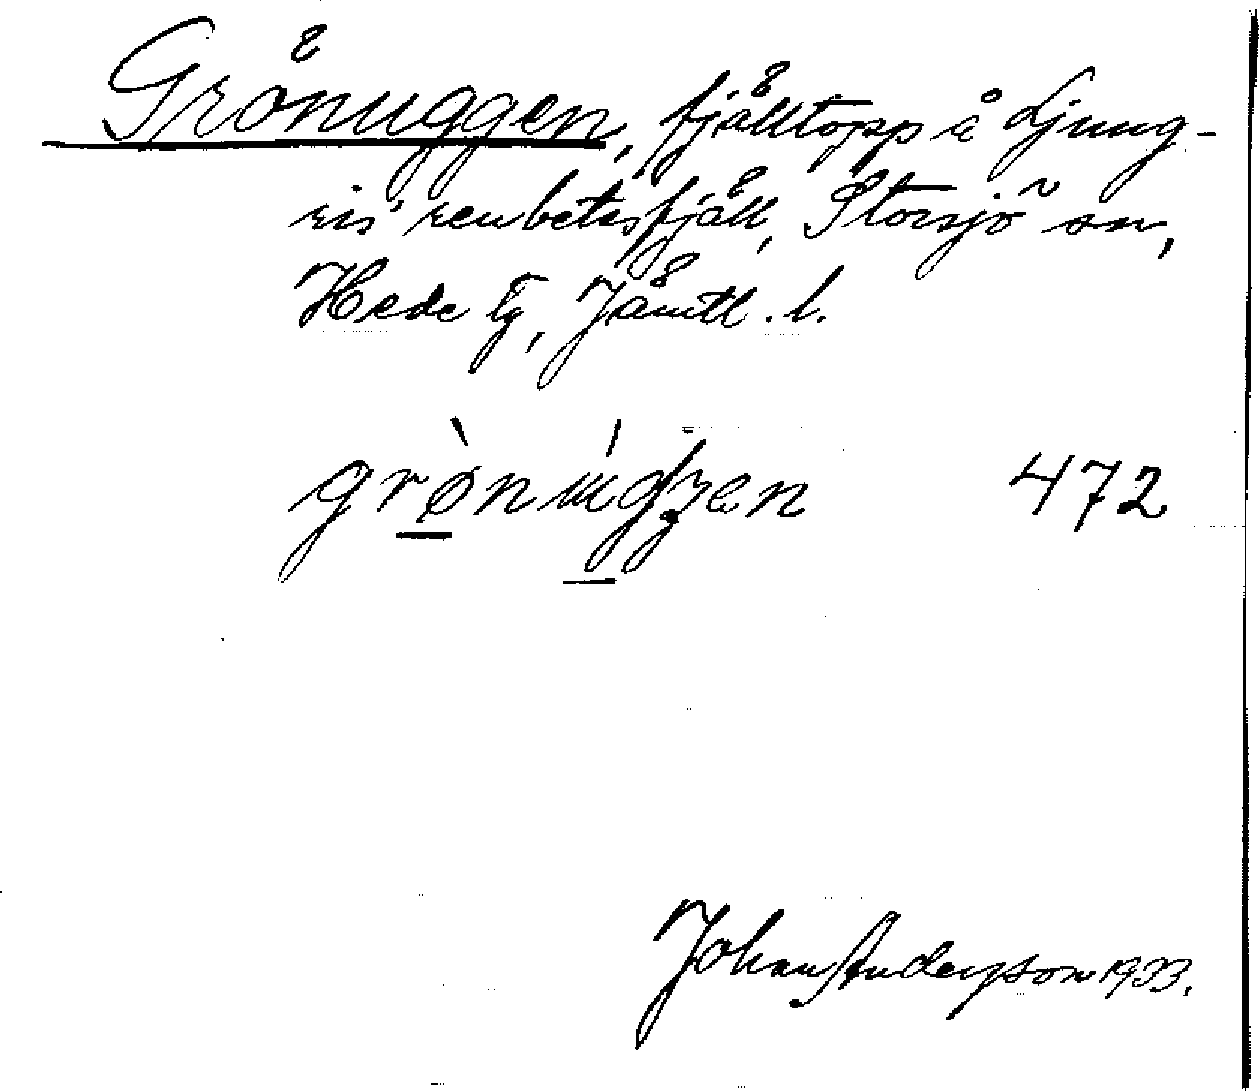 Grönuggen, fjälltopp å Ljung-
ris' renbetesfjäll, Storsjö sn,
Hede tg, Jämtl. l.
grø̀núgʒen 472
Johan Anderson 1933.